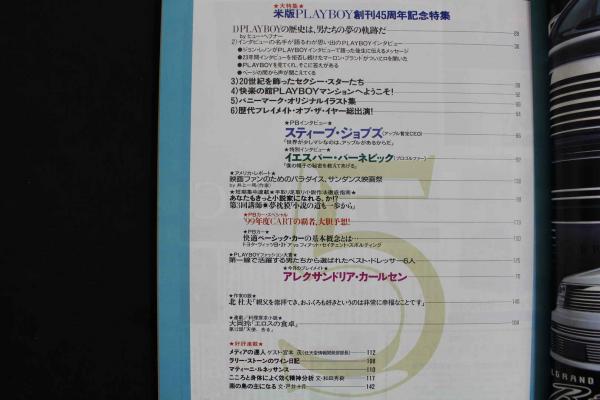 ★大特集★
米版PLAYBOY創刊45周年記念特集
1)PLAYBOYの歴史は、男たちの夢の軌跡だ
by ヒュー・ヘフナー
2)インタビューの名手が語るわが思い出のPLAYBOYインタビュー
●ジョン・レノンがPLAYBOYインタビューで語った後生に伝えるメッセージ
●23年間インタビューを拒否し続けたマーロン・ブランドがついに口を開いた
●PLAYBOYを見てくれ、そこに答えがある
●ページの間から声が聞こえてくる
3)20世紀を飾ったセクシー・スターたち
4)快楽の館PLAYBOYマンションへようこそ!
5)バニーマーク・オリジナルイラスト集
6)歴代プレイメイト・オブ・ザ・イヤー総出演!
★PBインタビュー★
スティーブ・ジョブズ(アップル暫定CEO)
「世界が少しマシなのは、アップルがあるからだ」
★特別インタビュー★
イエスパー・パーネビック(プロゴルファー)
「僕の帽子の秘密を教えてあげる」
★アメリカ・レポート★
映画ファンのためのパラダイス、サンダンス映画祭
あなたもきっと小説家になれる、か!?
第3回講師●夢枕獏「小説の道も一歩から」
★PBカー・スペシャル
'99年度CARTの覇者、大胆予想!
★PBカー★
快適ベーシック・カーの基本概念とは…
★PLAYBOYファッション大賞★
第一線で活躍する男たちから選ばれたベスト・ドレッサー6人
★今月のプレイメイト★
アレクサンドリア・カールセン
★作家の眼★
北 杜夫「親父を崇拝でき、おふくろも好きというのは非常に幸福なことです」
大岡玲「エロスの食卓」
★好評連載★
メディアの達人 ゲスト・宮本 茂(任天堂情報開発部部長) 112
ラリー・ストーンのワイン日記 108
マティーニ・ルネッサンス 110
こころと身体によく効く精神分析 文・和田秀樹 117
南の島の主になる 文・戸井十月 142
GRAND